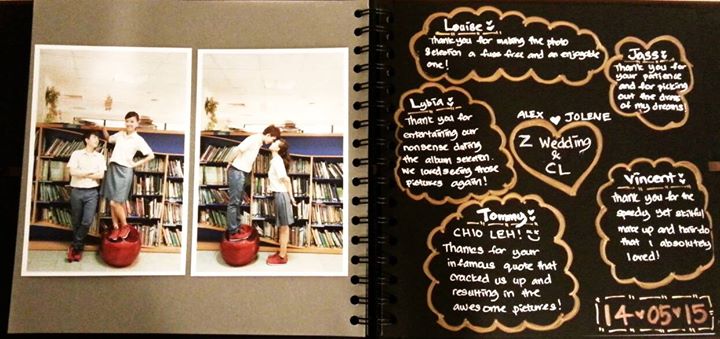 Louise
Thank you for making the photo
selection a fuss free and an enjoyable
one!
Jass
Thank you for
your patience
and for picking
out the dress
of my dreams
Lydia
Thank you for
entertaining our
nonsense during
the album selection
we loved seeing those
pictures again!
ALEX JOLENE
Z Wedding
&
CL
Vincent
Thank you for the
speedy yet skilful
make up and hair-do
that I absolutely
loved!
Tommy
CHIO LEH!
Thanks for your
infamous quote that
cracked us up and
resulting in the
awesome pictures!
14 05 15